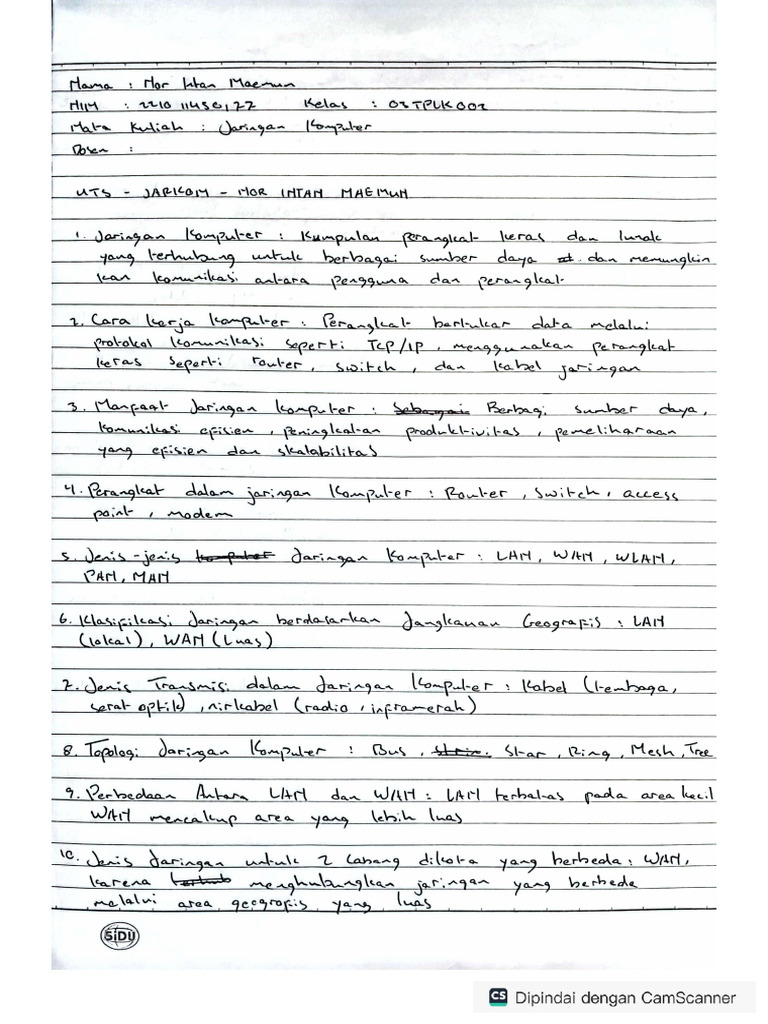 Nama : Nor Intan Maemun
NIM : 221011450177 Kelas : 03TPLK002
Mata Kuliah : Jaringan Komputer
Dosen :
UTS - JARKOM - NOR INTAN MAEMUN
1. Jaringan Komputer : Kumpulan perangkat keras dan lunak
yang terhubung untuk berbagai sumber daya dan memungkin
kan komunikasi antara pengguna dan perangkat
2. Cara Kerja Komputer : Perangkat bertukar data melalui
protokol komunikasi seperti TCP/IP, menggunakan perangkat
keras seperti router, switch, dan kabel jaringan
3. Manfaat Jaringan Komputer : Sebagai Berbagi sumber daya,
komunikasi efisien, peningkatan produktivitas, pemeliharaan
yang efisien dan skalabilitas
4. Perangkat dalam jaringan Komputer : Router, Switch, access
point, modem
5. Jenis-jenis komputer Jaringan Komputer : LAN, WAN, WLAN,
PAN, MAN
6. Klasifikasi Jaringan berdasarkan Jangkauan Geografis : LAN
(lokal), WAN (Luas)
7. Jenis Transmisi dalam Jaringan Komputer : Kabel (tembaga,
serat optik), nirkabel (radio, inframerah)
8. Topologi Jaringan Komputer : Bus, Star, Ring, Mesh, Tree
9. Perbedaan Antara LAN dan WAN : LAN terbatas pada area kecil
WAN mencakup area yang lebih luas
10. Jenis Jaringan untuk 2 Cabang dikota yang berbeda : WAN,
karena terhub menghubungkan jaringan yang berbeda
melalui area geografis yang luas
SiDU
CS Dipindai dengan CamScanner